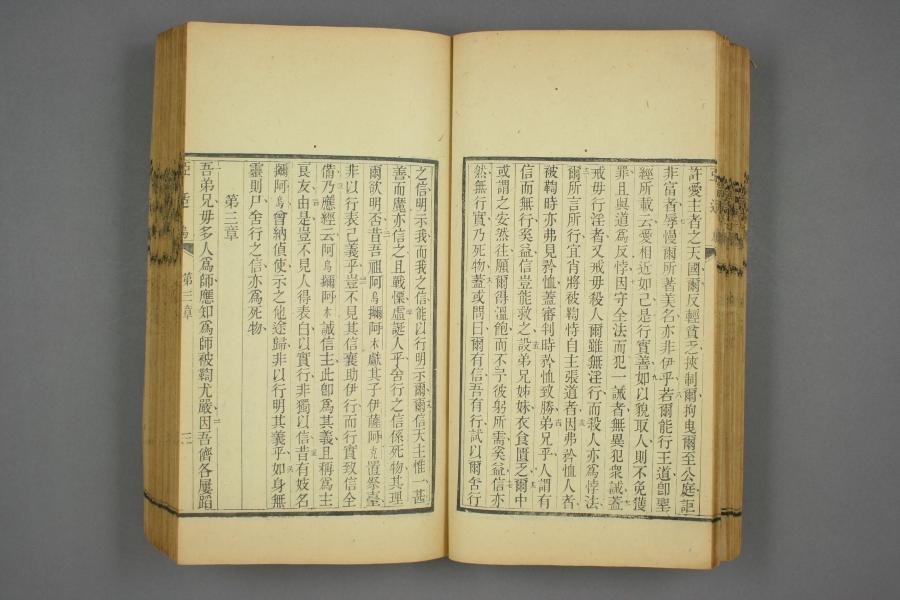 許愛主者之天國爾反輕貧乏挾制爾拘曳爾至公庭詎
非富者辱慢爾所著美名亦非伊乎若爾能行王道卽聖
經所載云愛相近如己是行實善如以貌取人則不免獲
罪且與道爲反悖因守全法而犯一誡者無異犯衆誡蓋
戒毋行淫者又戒毋殺人爾雖無淫行而殺人亦爲悖法
爾所言所行宜肖將被鞫時自主張道者因弗矜恤人者
被鞫時亦弗見矜恤蓋審判時矜恤致勝弟兄乎人謂有
信而無行奚益信豈能救之設弟兄姊妹衣食匱乏爾中
或謂之安然往願爾得溫飽而不予彼躬所需奚益信亦
然無行實乃死物蓋或問曰爾有信吾有行試以爾舍行
之信明示我而我之信能以行明示爾爾信天主惟一甚
善而魔亦信之且戰慄虛誕人乎舍行之信係死物其理
爾欲明否昔吾祖阿烏擱阿木獻其子伊薩阿克置祭臺
非以行表己義乎豈不見其信襄助伊行而行實致信全
備乃應經云阿烏擱阿木誠信主此卽爲其義且稱爲主
良友由是豈不見人得表白以實行非獨以信昔有妓名
擱阿烏曾納偵使示之他途歸非以行明其義乎如身無
靈則尸舍行之信亦爲死物
第三章
吾弟兄毋多人爲師應知爲師被鞫尤嚴因吾儕各屢蹈
第三章
三